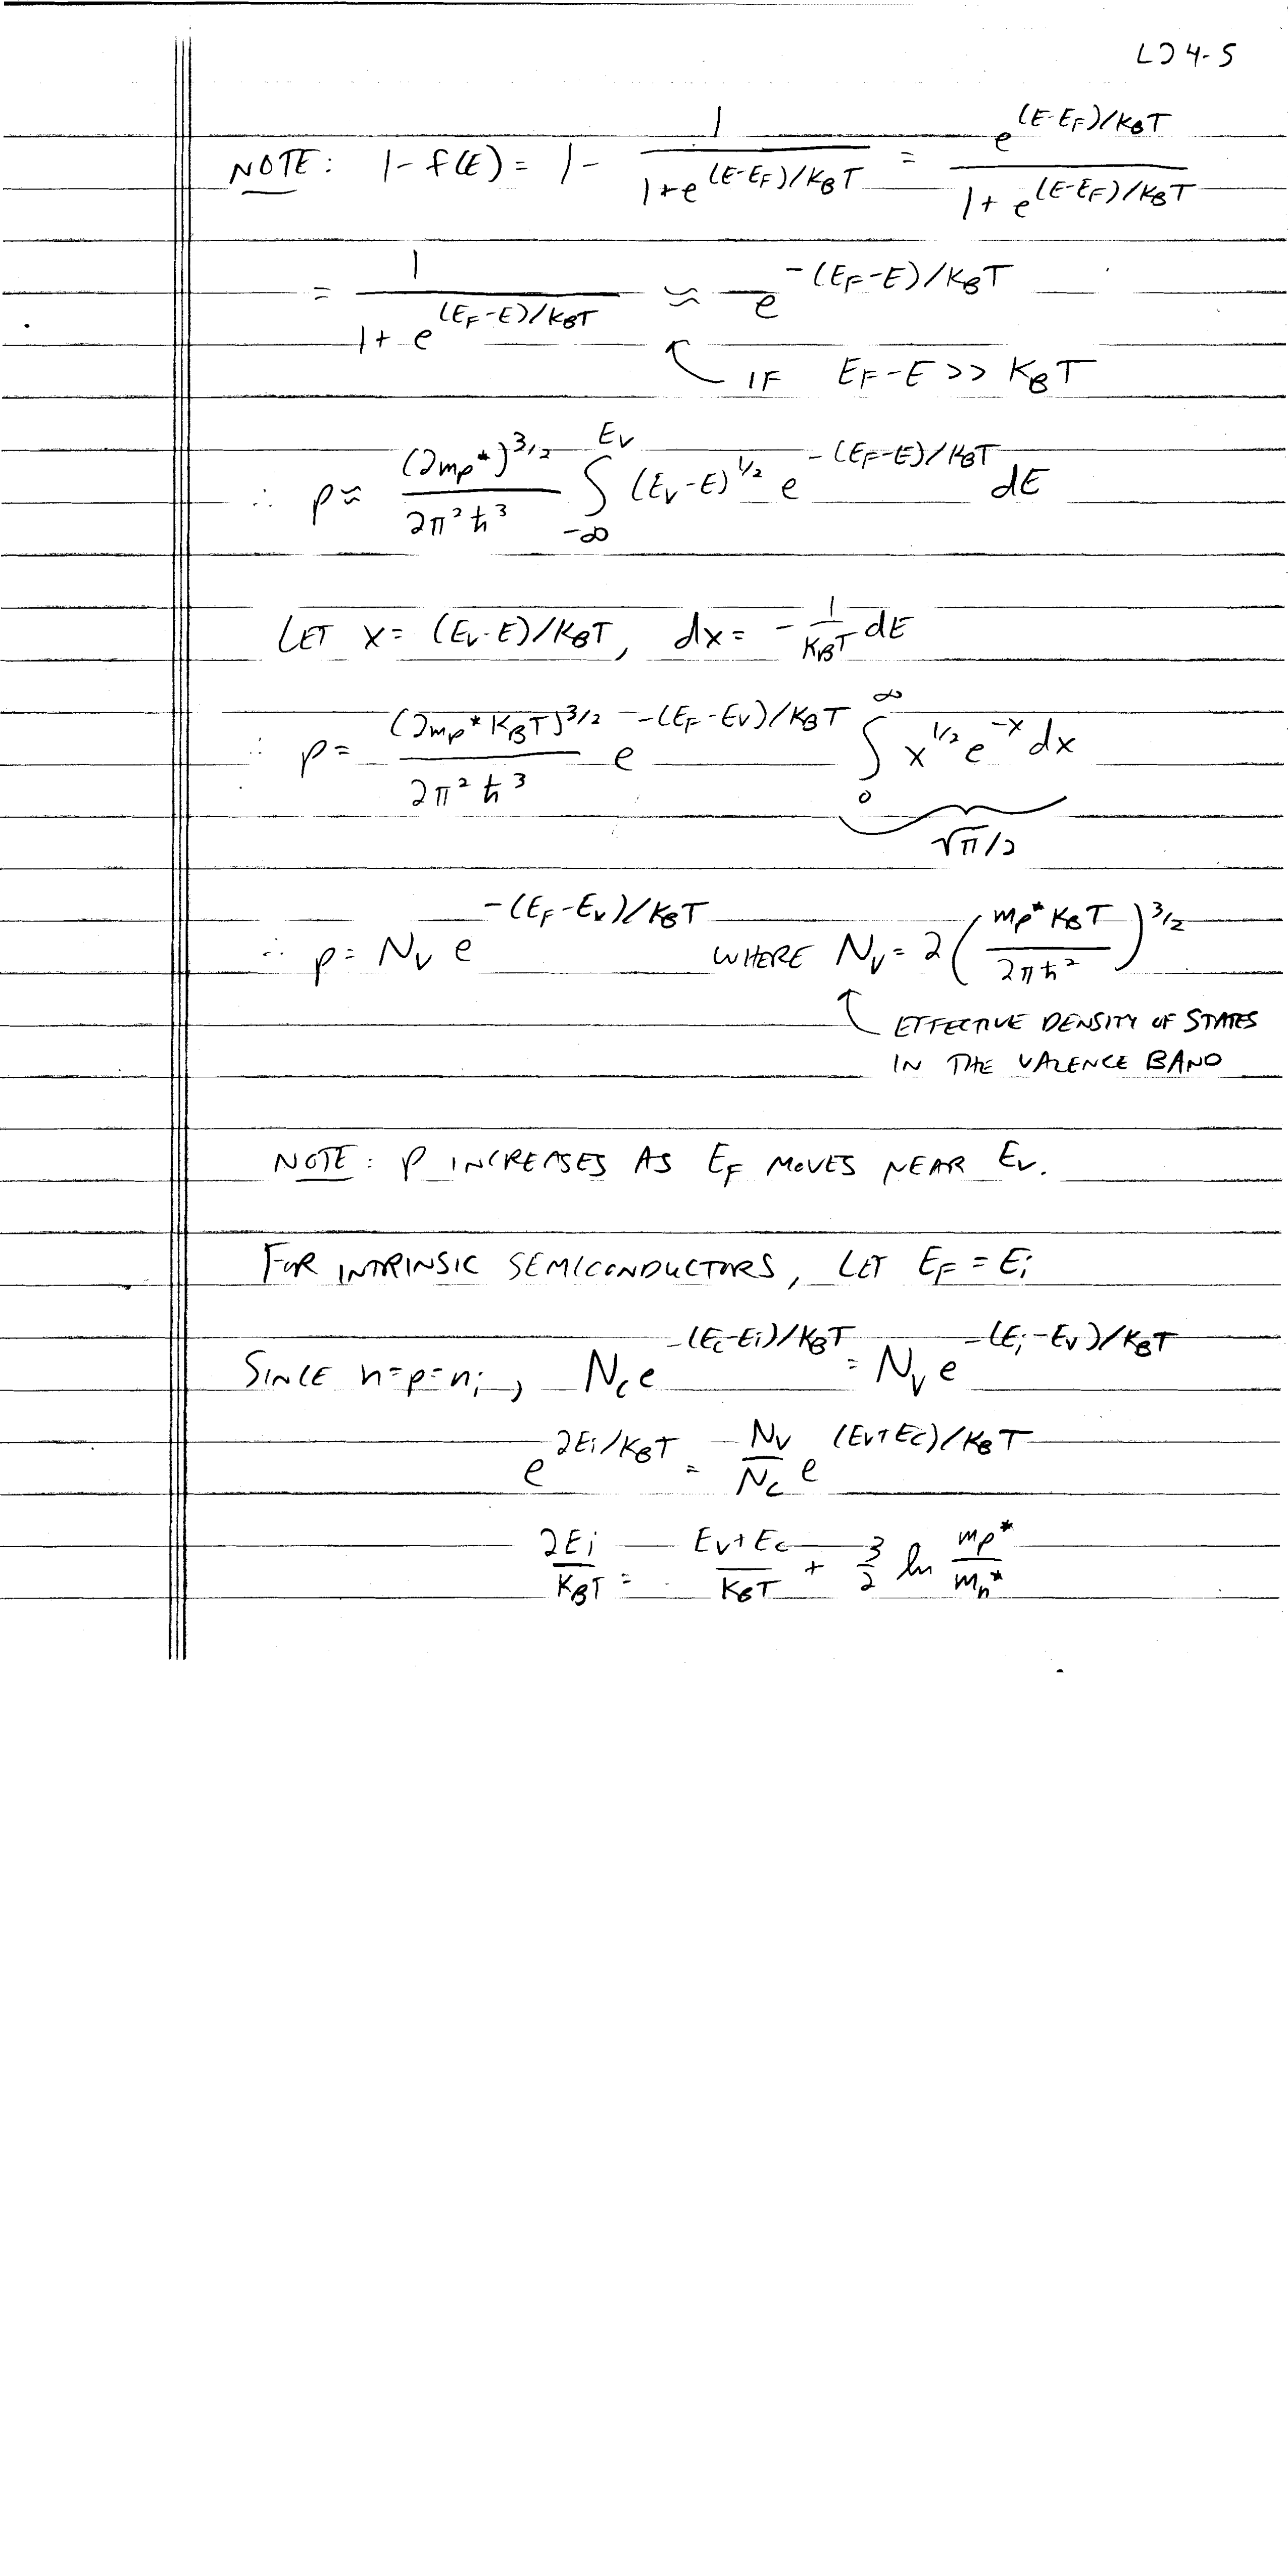 LD 4-5
NOTE: 1-f(E) = 1 - 1/(1+e^{(E-E_F)/K_BT}) = e^{(E-E_F)/K_BT}/(1+e^{(E-E_F)/K_BT})
= 1/(1+e^{(E_F-E)/K_BT}) ≈ e^{-(E_F-E)/K_BT}
IF E_F-E >> K_BT
∴ p ≈ (2m_p*)^{3/2}/(2π²ħ³) ∫_{-∞}^{E_V} (E_V-E)^{1/2} e^{-(E_F-E)/K_BT} dE
LET x = (E_V-E)/K_BT, dx = -1/(K_BT) dE
∴ p = (2m_p* K_BT)^{3/2}/(2π²ħ³) e^{-(E_F-E_V)/K_BT} ∫_0^∞ x^{1/2} e^{-x} dx
√π/2
∴ p = N_V e^{-(E_F-E_V)/K_BT} WHERE N_V = 2(m_p* K_BT/(2πħ²))^{3/2}
EFFECTIVE DENSITY OF STATES
IN THE VALENCE BAND
NOTE: p INCREASES AS E_F MOVES NEAR E_V.
FOR INTRINSIC SEMICONDUCTORS, LET E_F = E_i
SINCE n=p=n_i, N_c e^{-(E_c-E_i)/K_BT} = N_V e^{-(E_i-E_V)/K_BT}
e^{2E_i/K_BT} = N_V/N_c e^{(E_V+E_c)/K_BT}
2E_i/K_BT = (E_V+E_c)/K_BT + 3/2 ln m_p*/m_n*